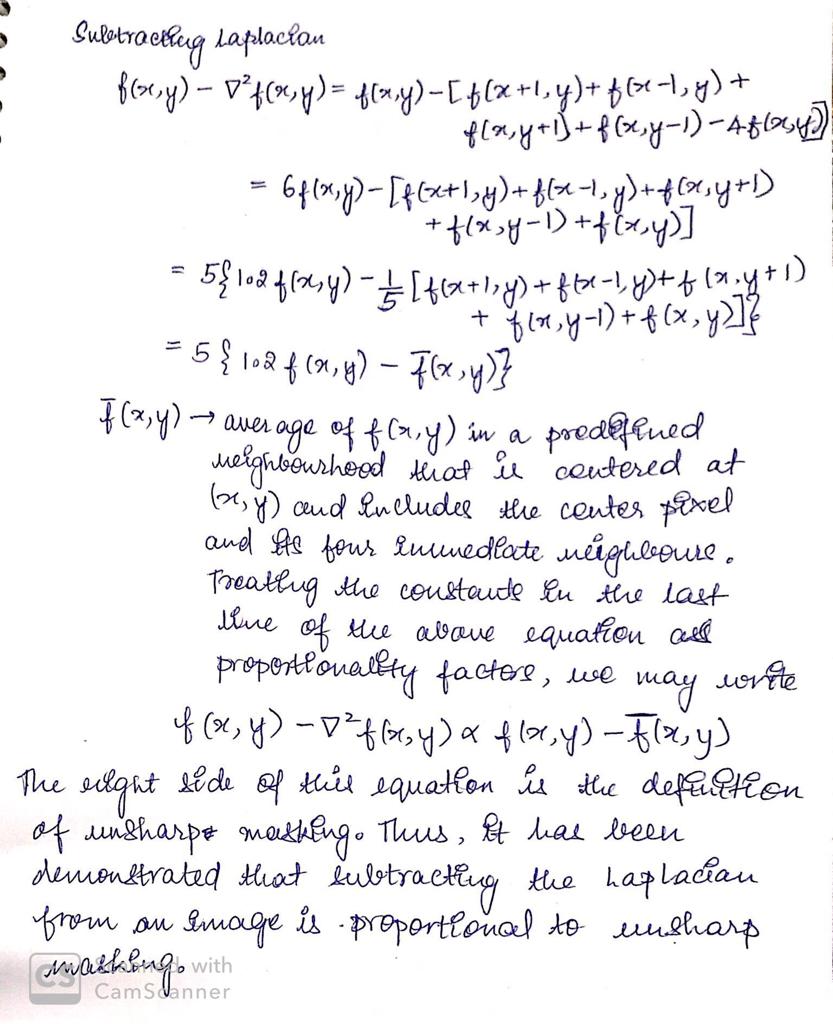 Subtracting Laplacian
f(x,y) - ∇²f(x,y) = f(x,y) - [f(x+1,y) + f(x-1,y) +
f(x,y+1) + f(x,y-1) - 4f(x,y)]
= 6f(x,y) - [f(x+1,y) + f(x-1,y) + f(x,y+1)
+ f(x,y-1) + f(x,y)]
= 5{1.2 f(x,y) - 1/5 [f(x+1,y) + f(x-1,y) + f(x,y+1)
+ f(x,y-1) + f(x,y)]}
= 5{1.2 f(x,y) - f̅(x,y)}
f̅(x,y) → average of f(x,y) in a predefined
neighbourhood that is centered at
(x,y) and includes the center pixel
and its four immediate neighbours.
Treating the constants in the last
line of the above equation as
proportionality factors, we may write
f(x,y) - ∇²f(x,y) ∝ f(x,y) - f̅(x,y)
The right side of this equation is the definition
of unsharp masking. Thus, it has been
demonstrated that subtracting the Laplacian
from an image is proportional to unsharp
masking.
CS Scanned with
CamScanner